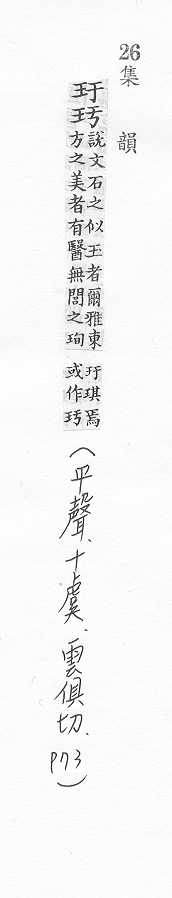 26
集韻
玗
說文石之似玉者爾雅東
方之美者有醫無閭之珣
玗琪焉
或作
(平聲、十虞、雲俱切、P73)